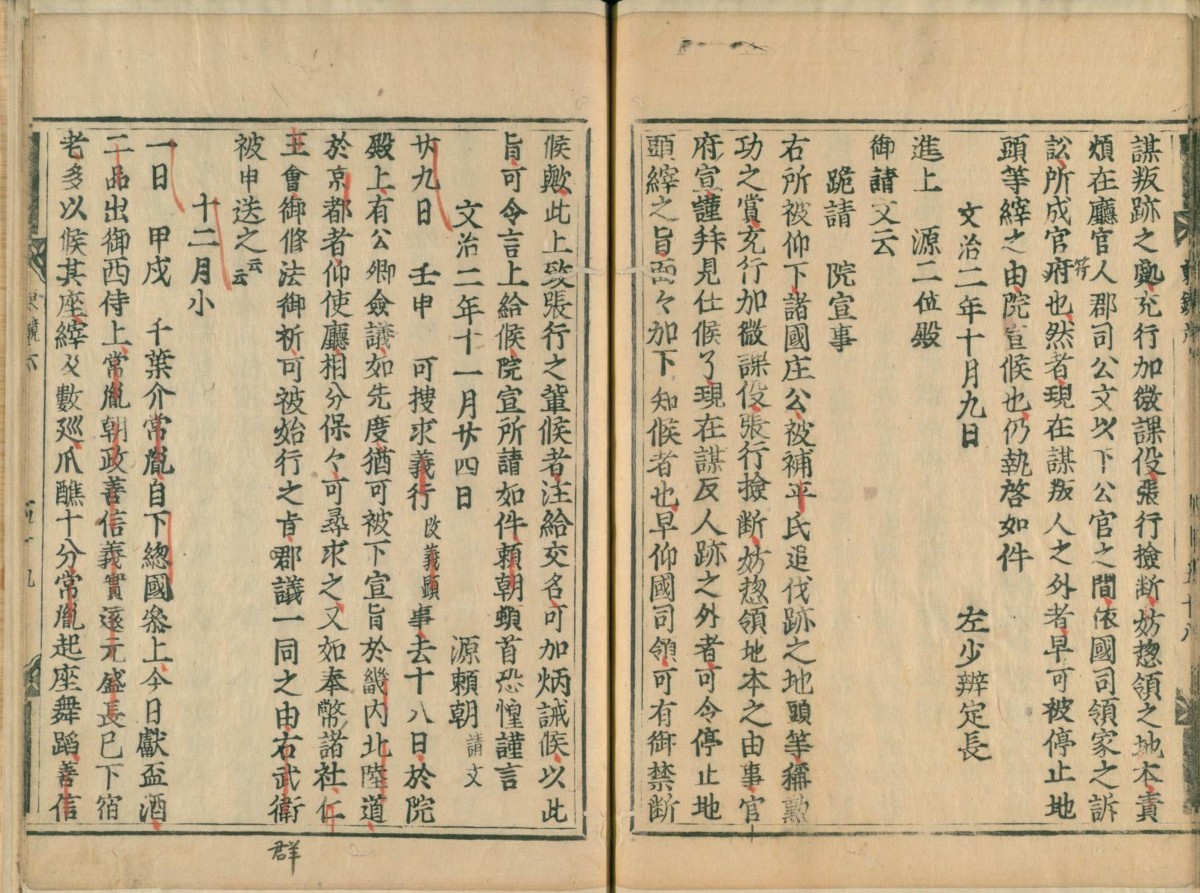 謀叛跡之處充行加微課役張行撿断妨惣領之地本責
煩在廳官人郡司公文以下公官之間依國司領家之訴
訟所成官府也然者現在謀叛人之外者早可被停止地
符
頭等縡之由院宣候也仍執啓如件
文治二年十月九日
左少辨定長
進上　源二位殿
御請文云
跪請　院宣事
右所被仰下諸國庄公被補平氏追伐跡之地頭等稱勲
功之賞充行加微課役張行撿断妨惣領地本之由事官
府宣謹拝見仕候了現在謀反人跡之外者可令停止地
頭縡之旨面々加下知候者也早仰國司領可有御禁断
候歟此上致張行之輩候者注給交名可加炳誡候以此
旨可令言上給候院宣所請如件頼朝頓首恐惶謹言
文治二年十一月廿四日　源頼朝請文
廿九日　壬申　可捜求義行改義顕事去十八日於院
殿上有公卿僉議如先度猶可被下宣旨於畿内北陸道
於京都者仰使廳相分保々可尋求之又如奉幣諸社仁
王會御修法御祈可被始行之肯郡議一同之由右武衛
被申送之云云
十二月小
一日　甲戌　千葉介常胤自下総國参上今日獻盃酒
二品出御西侍上常胤朝政善信義實遠元盛長已下宿
老多以候其座縡及數廵爪醮十分常胤起座舞蹈善信
群
五十九